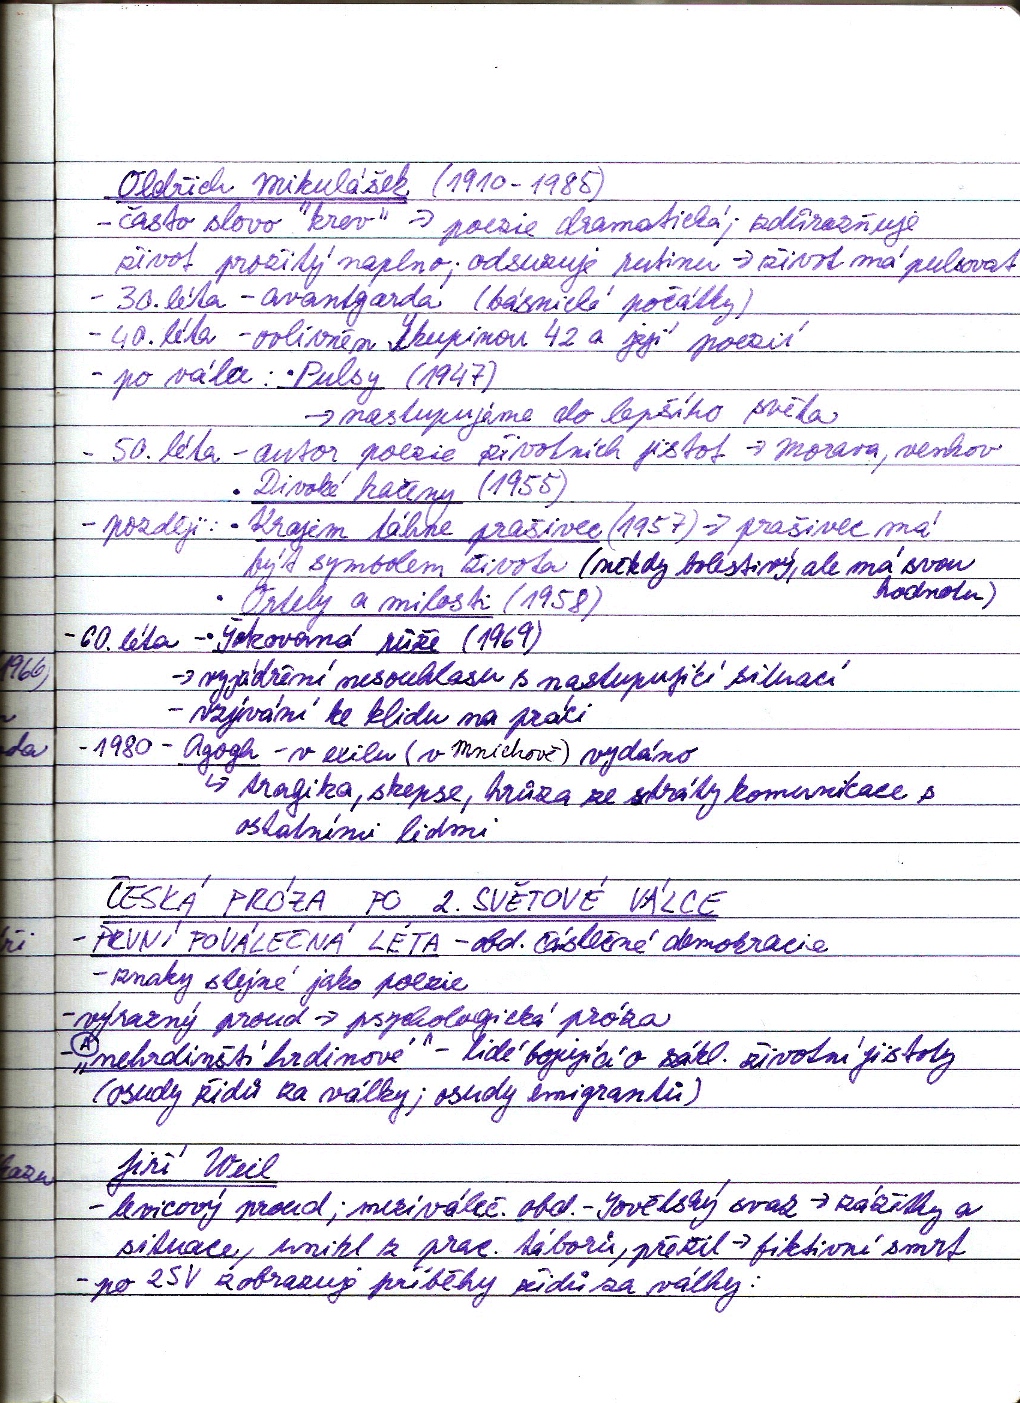 Oldřich Mikulášek (1910-1985)
- často slovo "krev" → poezie dramatická; zdůrazňuje
život prožitý naplno; odsuzuje rutinu → život má pulsovat
- 30. léta - avantgarda (básnické počátky)
- 40. léta - ovlivněn Skupinou 42 a její poezií
- po válce: • Pulsy (1947)
→ nastupujeme do lepšího světa
- 50. léta - autor poezie životních jistot → Morava, venkov
• Divoké kačeny (1955)
- později: • Krajem táhne prašivec (1957) → prašivec má
být symbolem života (někdy bolestivý, ale má svou
hodnotu)
• Ortely a milosti (1958)
- 60. léta - • Šokovaná růže (1969)
→ vyjádření nesouhlasu s nastupující situací
- vzývání ke klidu na práci
- 1980 - Agogh - v exilu (v Mnichově) vydáno
↳ tragika, skepse, hrůza ze ztráty komunikace s
ostatními lidmi
ČESKÁ PRÓZA PO 2. SVĚTOVÉ VÁLCE
- PRVNÍ POVÁLEČNÁ LÉTA - obd. částečné demokracie
- znaky stejné jako poezie
- výrazný proud → psychologická próza
- A „nehrdinští hrdinové" - lidé bojující o zákl. životní jistoty
(osudy židů za války; osudy emigrantů)
Jiří Weil
- levicový proud; meziváleč. obd. - Sovětský svaz → zážitky a
situace, unikl z prac. táborů, přežil → fiktivní smrt
- po 2SV zobrazuje příběhy židů za války:
1966)